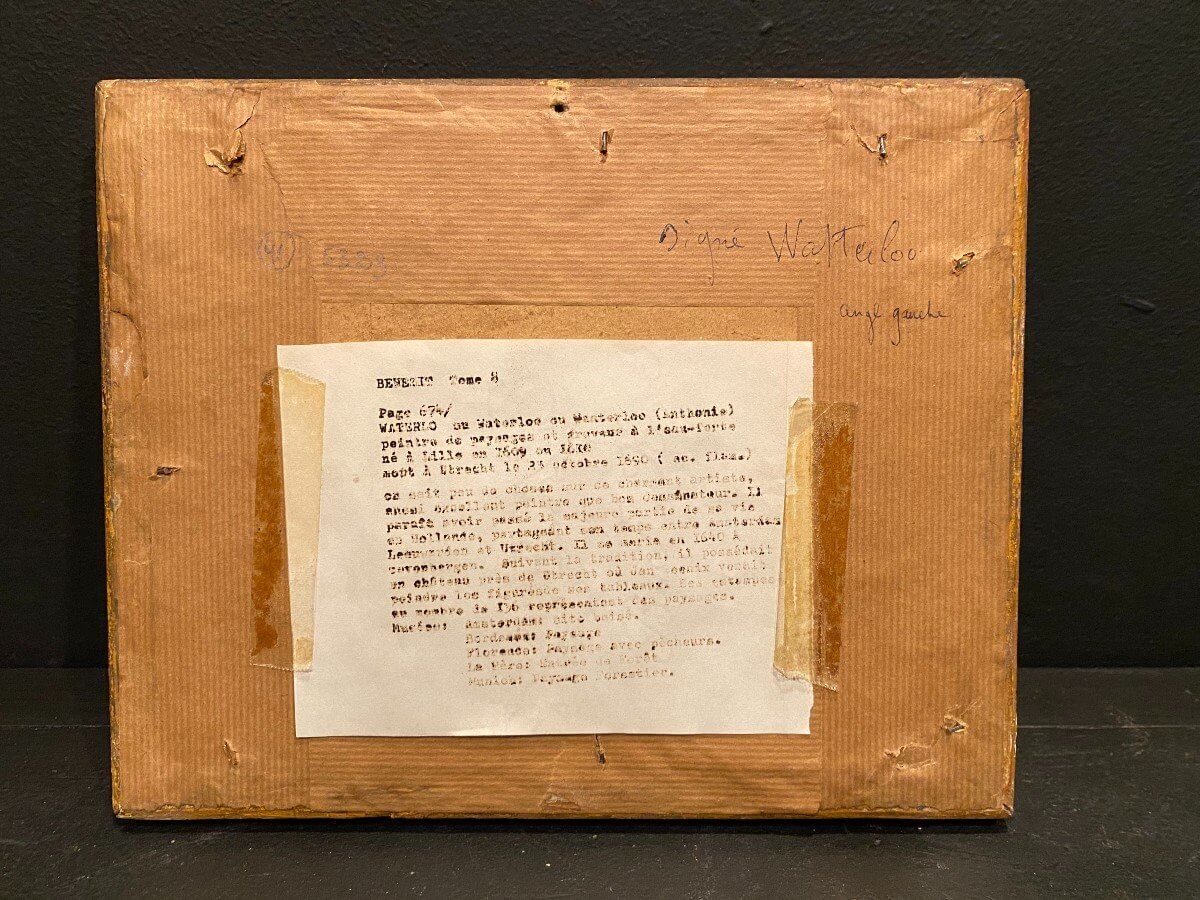 Signé Watterloo
angl gauche
5323
BENEZIT Tome 8
Page 674/
WATERLO ou Waterloo ou Wanterloo (Anthonie)
peintre de paysages et graveur à l'eau-forte
né à Lille en 1609 ou 1610
mort à Utrecht le 23 octobre 1690 ( ec. flam.)
on sait peu de choses sur ce charmant artiste,
aussi excellent peintre que bon dessinateur. Il
paraît avoir passé la majeure partie de sa vie
en Hollande, partageant son temps entre Amsterdam
Leeuwarden et Utrecht. Il se maria en 1640 à
Suivant la tradition, il possédait
un château près de Utrecht où Jan Weenix venait
peindre les figures de ses tableaux. Ses estampes
au nombre de 136 représentent des paysages.
Musées: Amsterdam: Site boisé.
Bordeaux: Paysage
Florence: Paysage avec pêcheurs.
La Fère: Entrée de Forêt
Munich: Paysage Forestier.